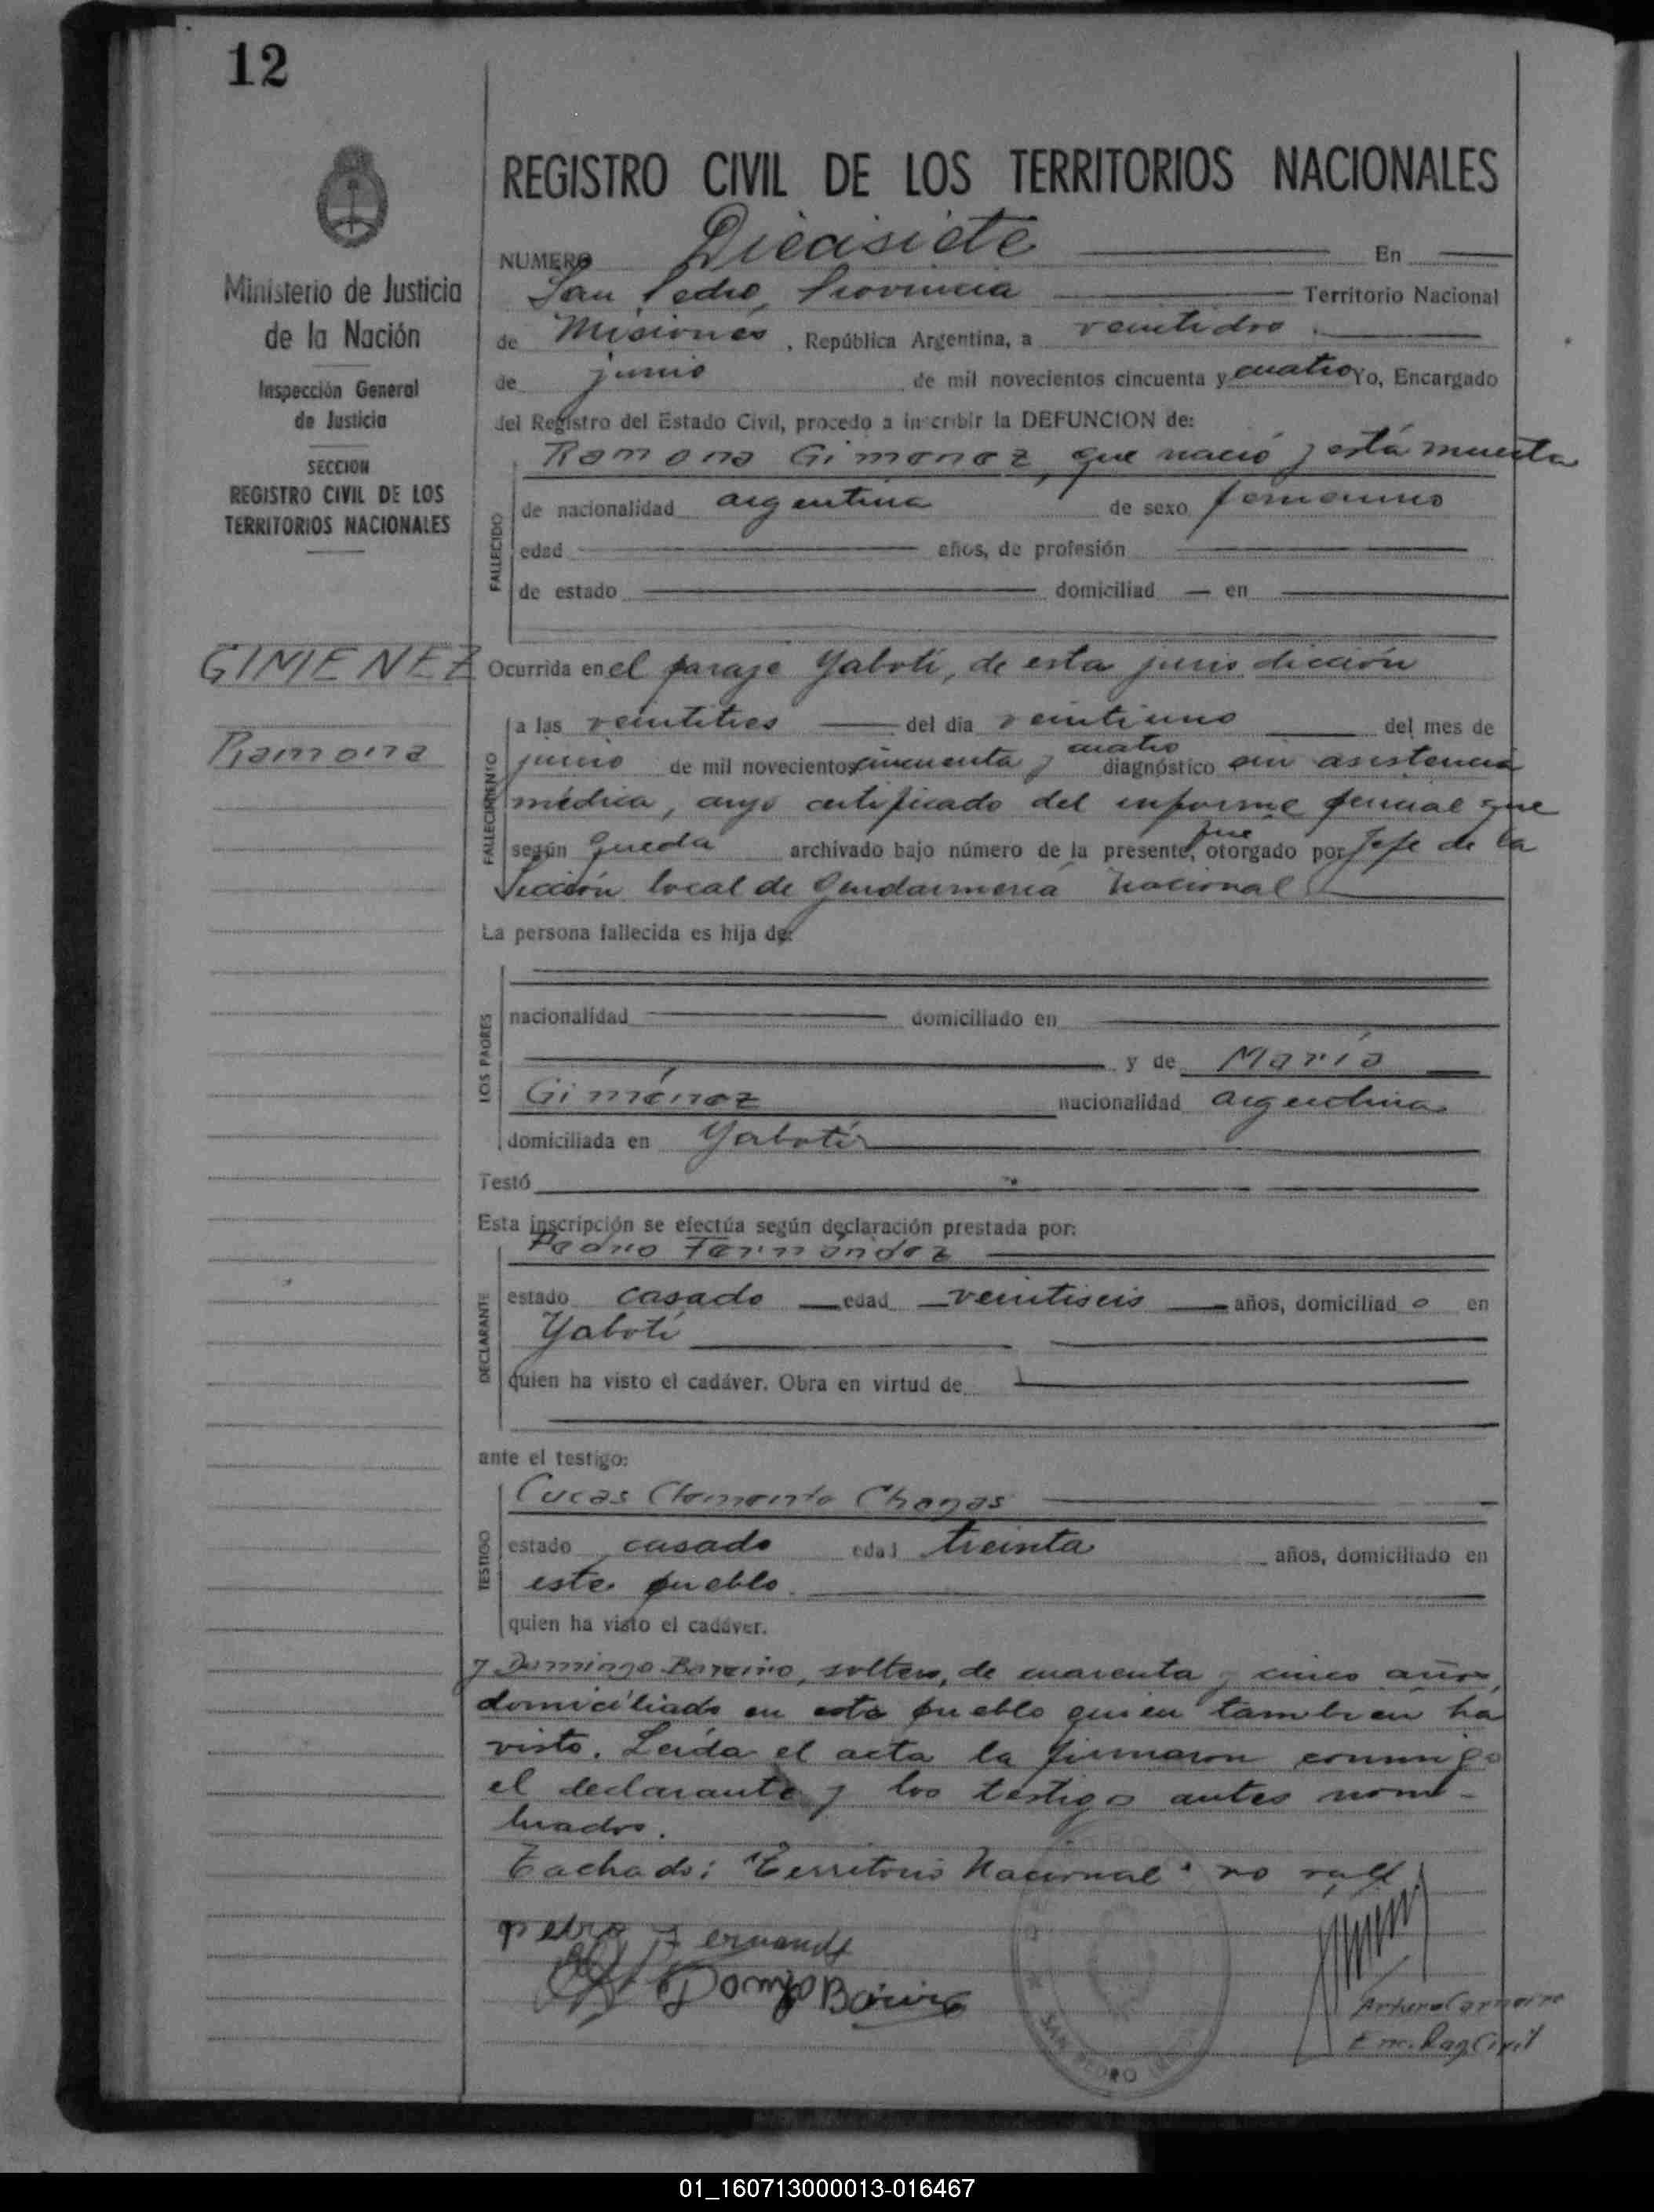 12
REGISTRO CIVIL DE LOS TERRITORIOS NACIONALES
Ministerio de Justicia
de la Nación
Inspección General
de Justicia
SECCION
REGISTRO CIVIL DE LOS
TERRITORIOS NACIONALES
GIMENEZ
Ramona
NUMERO Diecisiete En
San Pedro, Provincia Territorio Nacional
de Misiones, República Argentina, a veintidos
de junio de mil novecientos cincuenta y cuatro Yo, Encargado
del Registro del Estado Civil, procedo a inscribir la DEFUNCION de:
Ramona Gimenez, que nació y está muerta
FALLECIDO
de nacionalidad argentina de sexo femenino
edad años, de profesión
de estado domiciliad en
Ocurrida en el paraje Yabotí, de esta jurisdicción
FALLECIMIENTO
a las veintitres del día veintiuno del mes de
junio de mil novecientos cincuenta y cuatro diagnóstico sin asistencia
médica, cuyo certificado del informe que
según queda archivado bajo número de la presente, fue otorgado por Jefe de la
Sección local de Gendarmería Nacional
La persona fallecida es hija de:
LOS PADRES
nacionalidad domiciliado en
y de María
Giménez nacionalidad argentina
domiciliada en Yabotí
Testó
Esta inscripción se efectúa según declaración prestada por:
DECLARANTE
Pedro Fernández
estado casado edad veintiseis años, domiciliad o en
Yabotí
quien ha visto el cadáver. Obra en virtud de
ante el testigo:
TESTIGO
Lucas Clemente Chagas
estado casado edad treinta años, domiciliado en
este pueblo
quien ha visto el cadáver.
y Domingo Bareiro, soltero, de cuarenta y cinco años,
domiciliado en este pueblo quien tambien ha
visto. Leída el acta la firmaron conmigo
el declarante y los testigos antes nom-
brados.
Tachado: "Territorio Nacional" no vale
pedro Fernandz
Domgo Bareiro
SAN PEDRO
Arturo Carneiro
Enc. Reg Civil
01_160713000013-016467